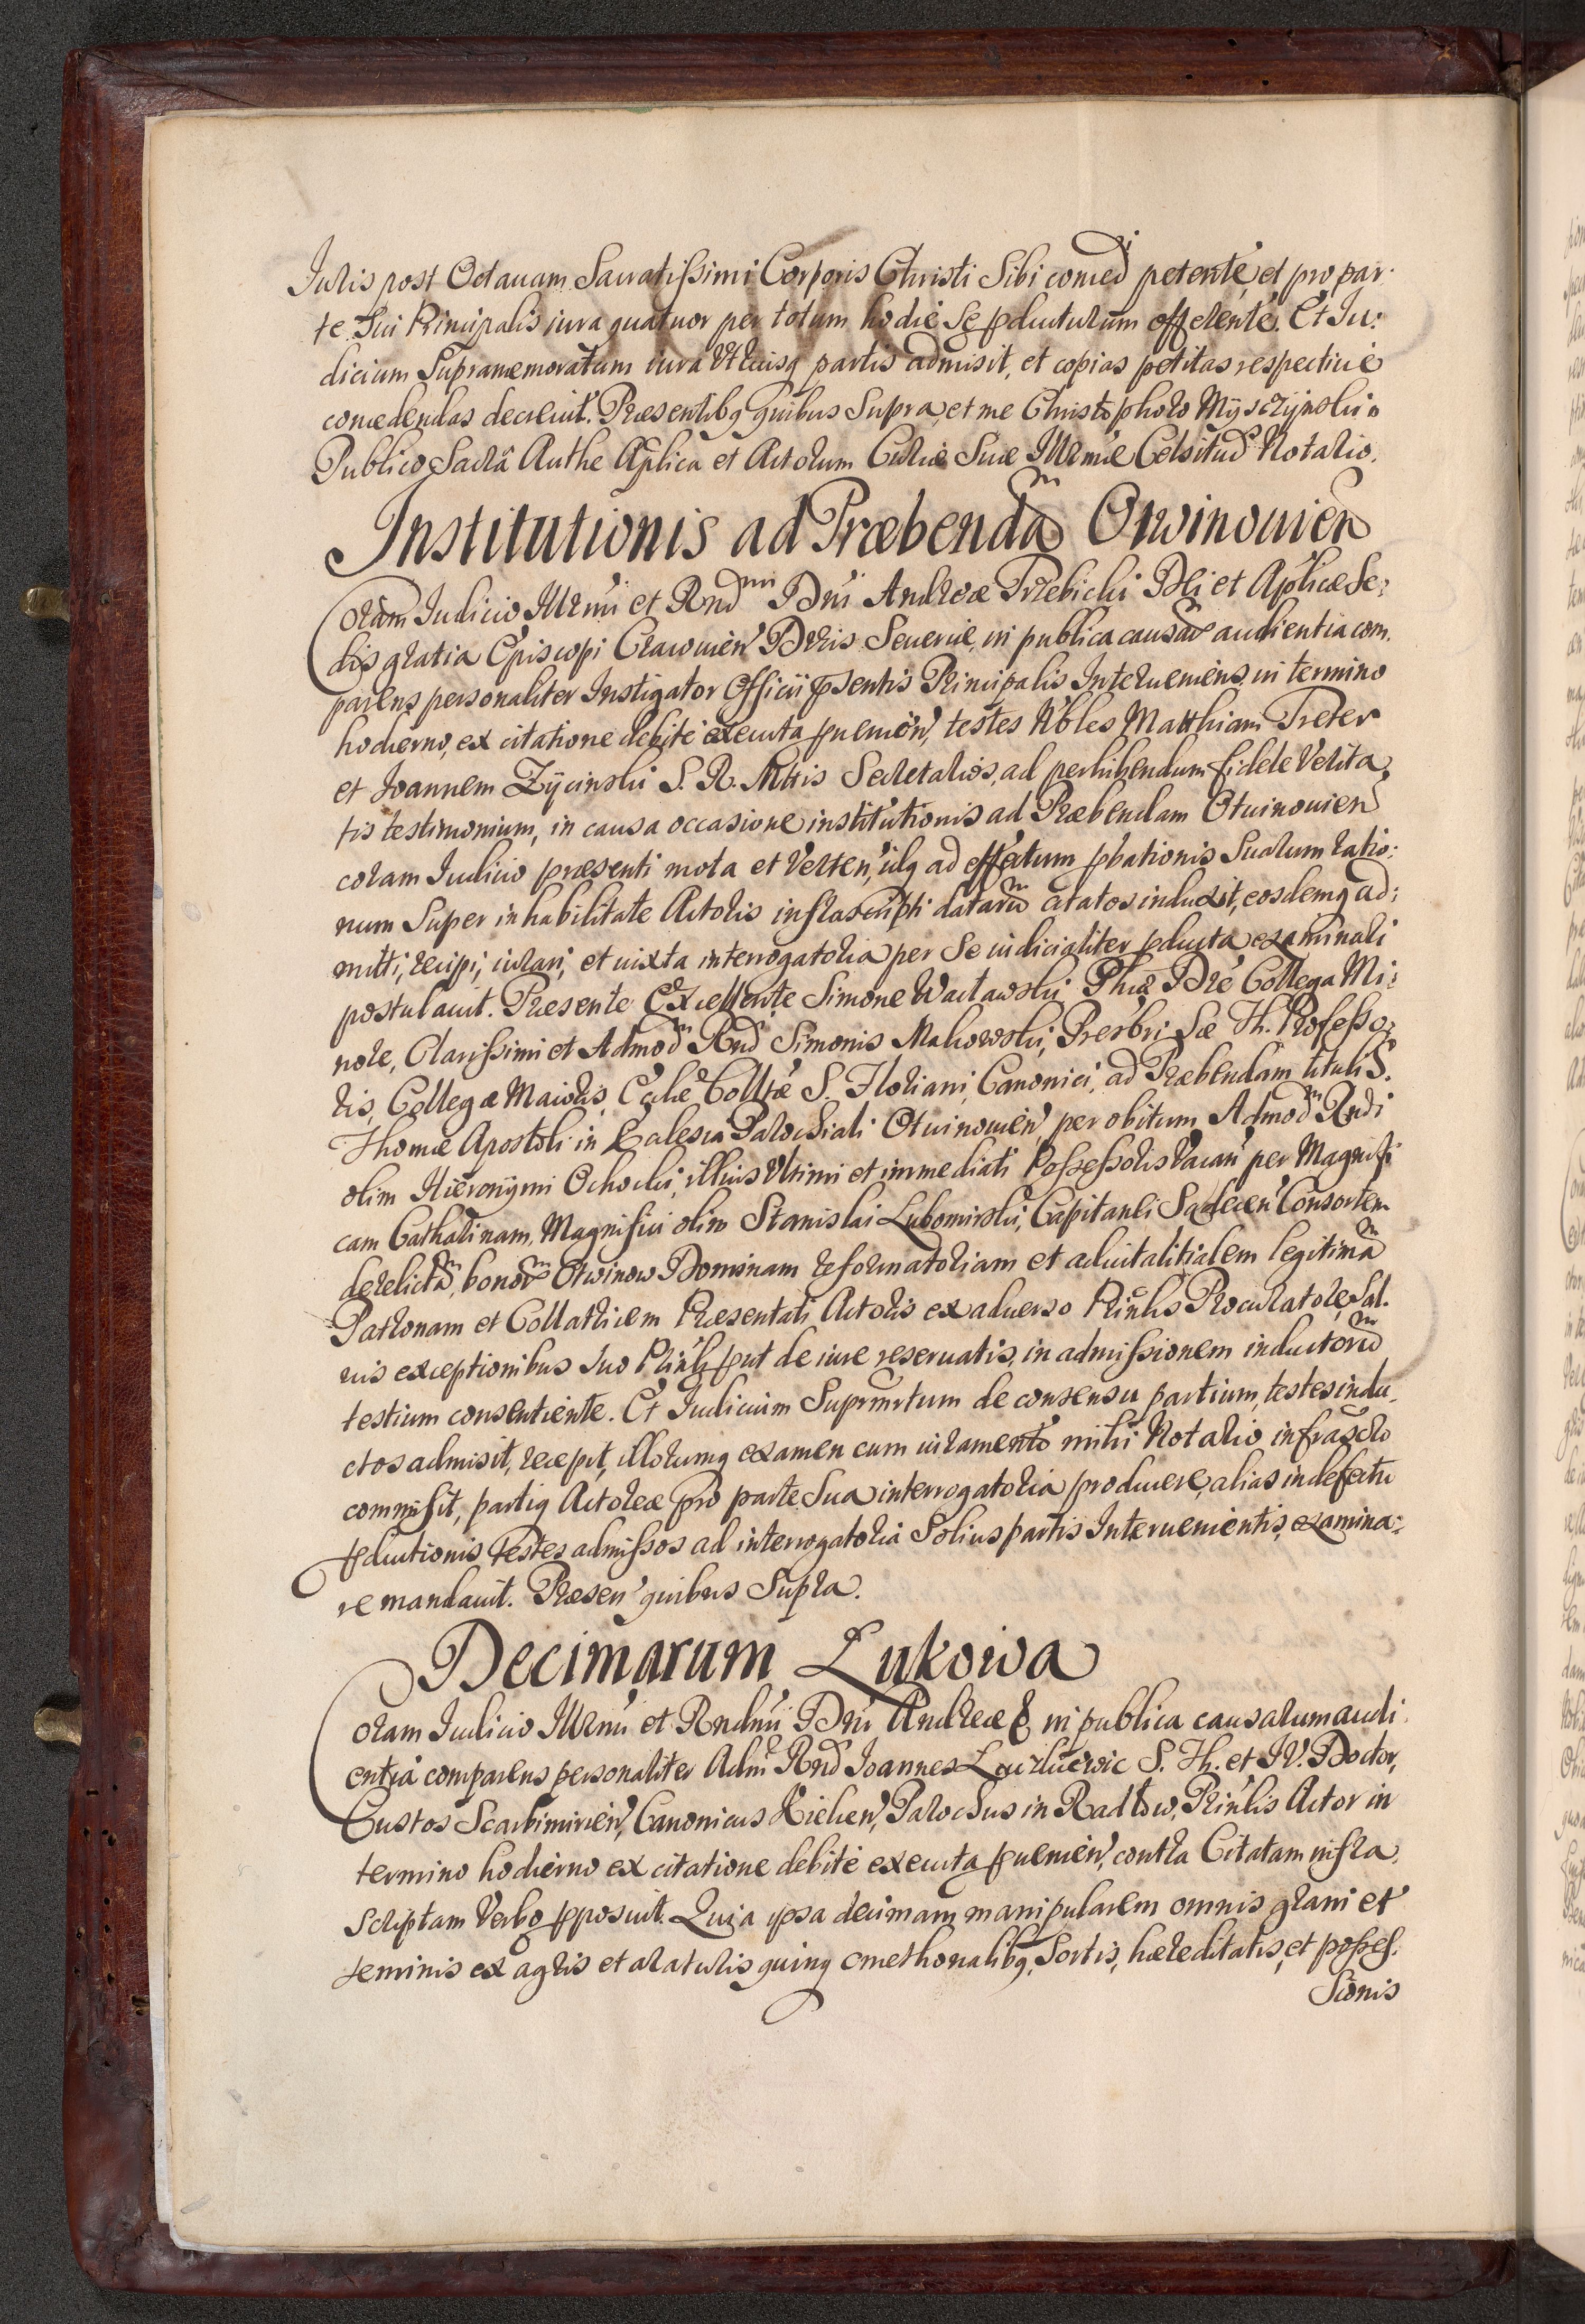 Iuris post Octauam Sacratissimi Corporis Christi Sibi conced̄i petente, et pro par-
te Sui Principalis iura quatuor per totum hodie Se p̱ducturum offerente. Et Iu:
dicium Supramemoratum iura Vtriusq partis admisit, et copias petitas respectiue
concedendas decreuit. Præsentibq quibus Supra, et me Christophoro Mÿszÿnski
Publico Sacrâ Authe Aplica et Actorum Curiæ Suæ Illrmæ Celsitud Notario.
Institutionis ad Præbendam Otwinouien
Coram Iudicio Illrmi et Rndmi Dni Andreæ Trzebicki Dei et Aplicæ Se:
dis gratia Episcopi Cracouien Ducis Seueriæ, in publica causar audientia com.
parens personaliter Instigator Officii p̄sentis Principalis Interueniens, in termino
hodierno, ex citatione debite executa p̱uenien, testes Nbles Matthiam Treter
et Ioannem Zÿcinski S. R. Mttis Secretarios, ad perhibendum fidele Verita
tis testimonium, in causa occasione institutionis ad Præbendam Otwinouien
coram Iudicio præsenti mota et Verten, idq ad effectum p̱bationis Suarum ratio:
num Super inhabilitate Actoris infrascripti datarum citatos induxit, eosdemq ad:
mitti, recipi, iurari, et iuxta interrogatoria per Se iudicialiter p̱ducta examinari
postulauit. Præsente Excellente Simone Wactawski Phiæ Dre Collega Mi:
nore, Clarissimi et Admodm Rnd Simonis Makowski, Presbri Sæ Th. Professo:
ris, Collegæ Maioris, Eccliæ Colltæ S. Floriani, Canonici, ad Præbendam tituli S.
Thomæ Apostoli in Ecclesia Parochiali Otwinouien per obitum Admodm Rndi
olim Hieronÿmi Ochocki, illius Vltimi et immediati Possessoris Vacan per Magnifi
cam Catharinam, Magnifici olim Stanislai Lubomirski, Capitanei Sandecen Consortem
derelictam, bonorm Otwinow Dominam reformatoriam et aduitalitialem legitimam
Patronam et Collatricem Præsentati Actoris ex aduerso Prinlis Procuratore, Sal.
uis exceptionibus Suo Prinli p̱ut de iure reseruatis, in admissionem inductorum
testium consentiente. Et Iudicium Suprmrtum de consensu partium, testes indu.
ctos admisit, recepit, illorumq examen cum iuramento mihi Notario infrascto
commisit, partiq Actoreæ pro parte Sua interrogatoria producere, alias in defectu
p̱ductionis testes admissos ad interrogatoria Solius partis Interuenientis, examina:
re mandauit. Præsen quibus Supra.
Decimarum Łukowa
Coram Iudicio Illrmi et Rndmi Dni Andreæ & in publica causarum audi
entia comparens personaliter Adm Rnd Ioannes S. Th. et IV. Doctor,
Custos Scarbimirien, Canonicus Kielcen, Parochus in Radłow, Prinlis Actor in
termino hodierno ex citatione debite executa p̱uenien, contra Citatam infra
Scriptam Verbo p̱posuit. Quia ipsa decimam manipularem omnis grani et
Seminis ex agris et araturis quinq cmethonalibq, Sortis, hæreditatis, et posses.
Sionis